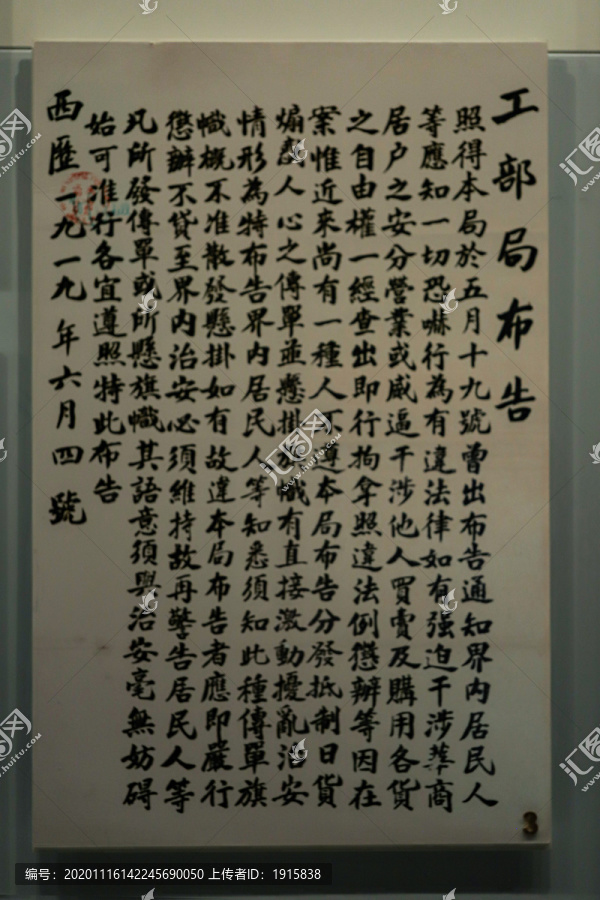 工部局布告
照得本局於五月十九號曾出布告通知界内居民人
等應知一切恐嚇行為有違法律如有强迫干涉華商
居户之安分營業或威逼干涉他人買賣及購用各貨
之自由權一經查出即行拘拿照違法例懲辦等因在
案惟近來尚有一種人不遵本局布告分發抵制日貨
煽惑人心之傳單並懸掛旗幟有直接激動擾亂治安
情形為特布告界内居民人等知悉須知此種傳單旗
幟概不准散發懸掛如有故違本局布告者應即嚴行
懲辦不貸至界内治安必須維持故再警告居民人等
凡所發傳單或所懸旗幟其語意須與治安毫無妨碍
始可准行各宜遵照特此布告
西歷一九一九年六月四號
3
编号：20201116142245690050 上传者ID：1915838